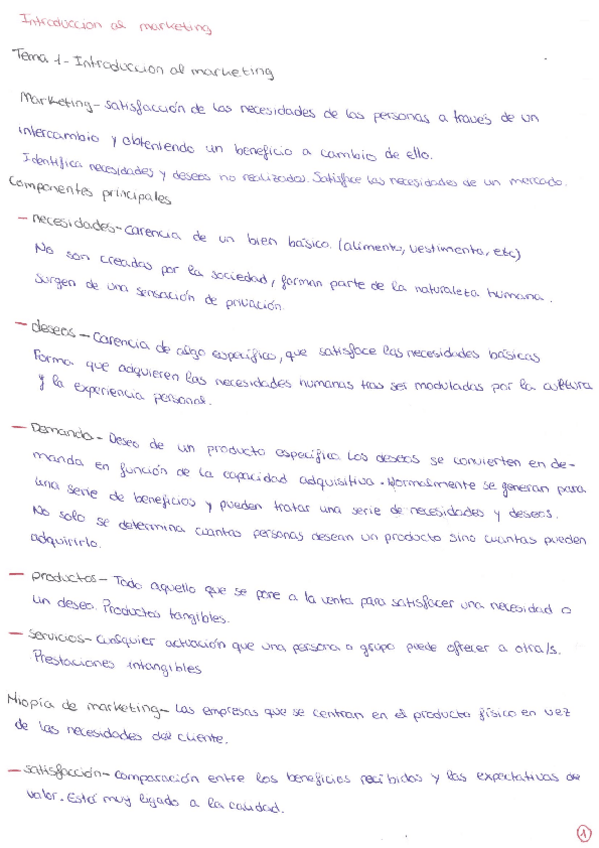 Introducción al marketing
Tema 1 - Introducción al marketing
Marketing - satisfacción de las necesidades de las personas a través de un
intercambio y obteniendo un beneficio a cambio de ello.
Identifica necesidades y deseos no realizados. Satisface las necesidades de un mercado.
Componentes principales
- necesidades - carencia de un bien básico. (alimento, vestimenta, etc)
No son creadas por la sociedad, forman parte de la naturaleza humana.
Surgen de una sensación de privación.
- deseos - Carencia de algo específico, que satisface las necesidades básicas
Forma que adquieren las necesidades humanas tras ser moduladas por la cultura
y la experiencia personal.
- Demanda - Deseo de un producto específico. Los deseos se convierten en de-
manda en función de la capacidad adquisitiva. Normalmente se generan para
una serie de beneficios y pueden tratar una serie de necesidades y deseos.
No solo se determina cuantas personas desean un producto sino cuantas pueden
adquirirlo.
- productos - Todo aquello que se pone a la venta para satisfacer una necesidad o
un deseo. Productos tangibles.
- servicios - Cualquier actuación que una persona o grupo puede ofrecer a otra/s.
Prestaciones intangibles
Miopía de marketing - Las empresas que se centran en el producto físico en vez
de las necesidades del cliente.
- satisfacción - comparación entre los beneficios recibidos y las expectativas de
valor. Está muy ligado a la calidad.
1